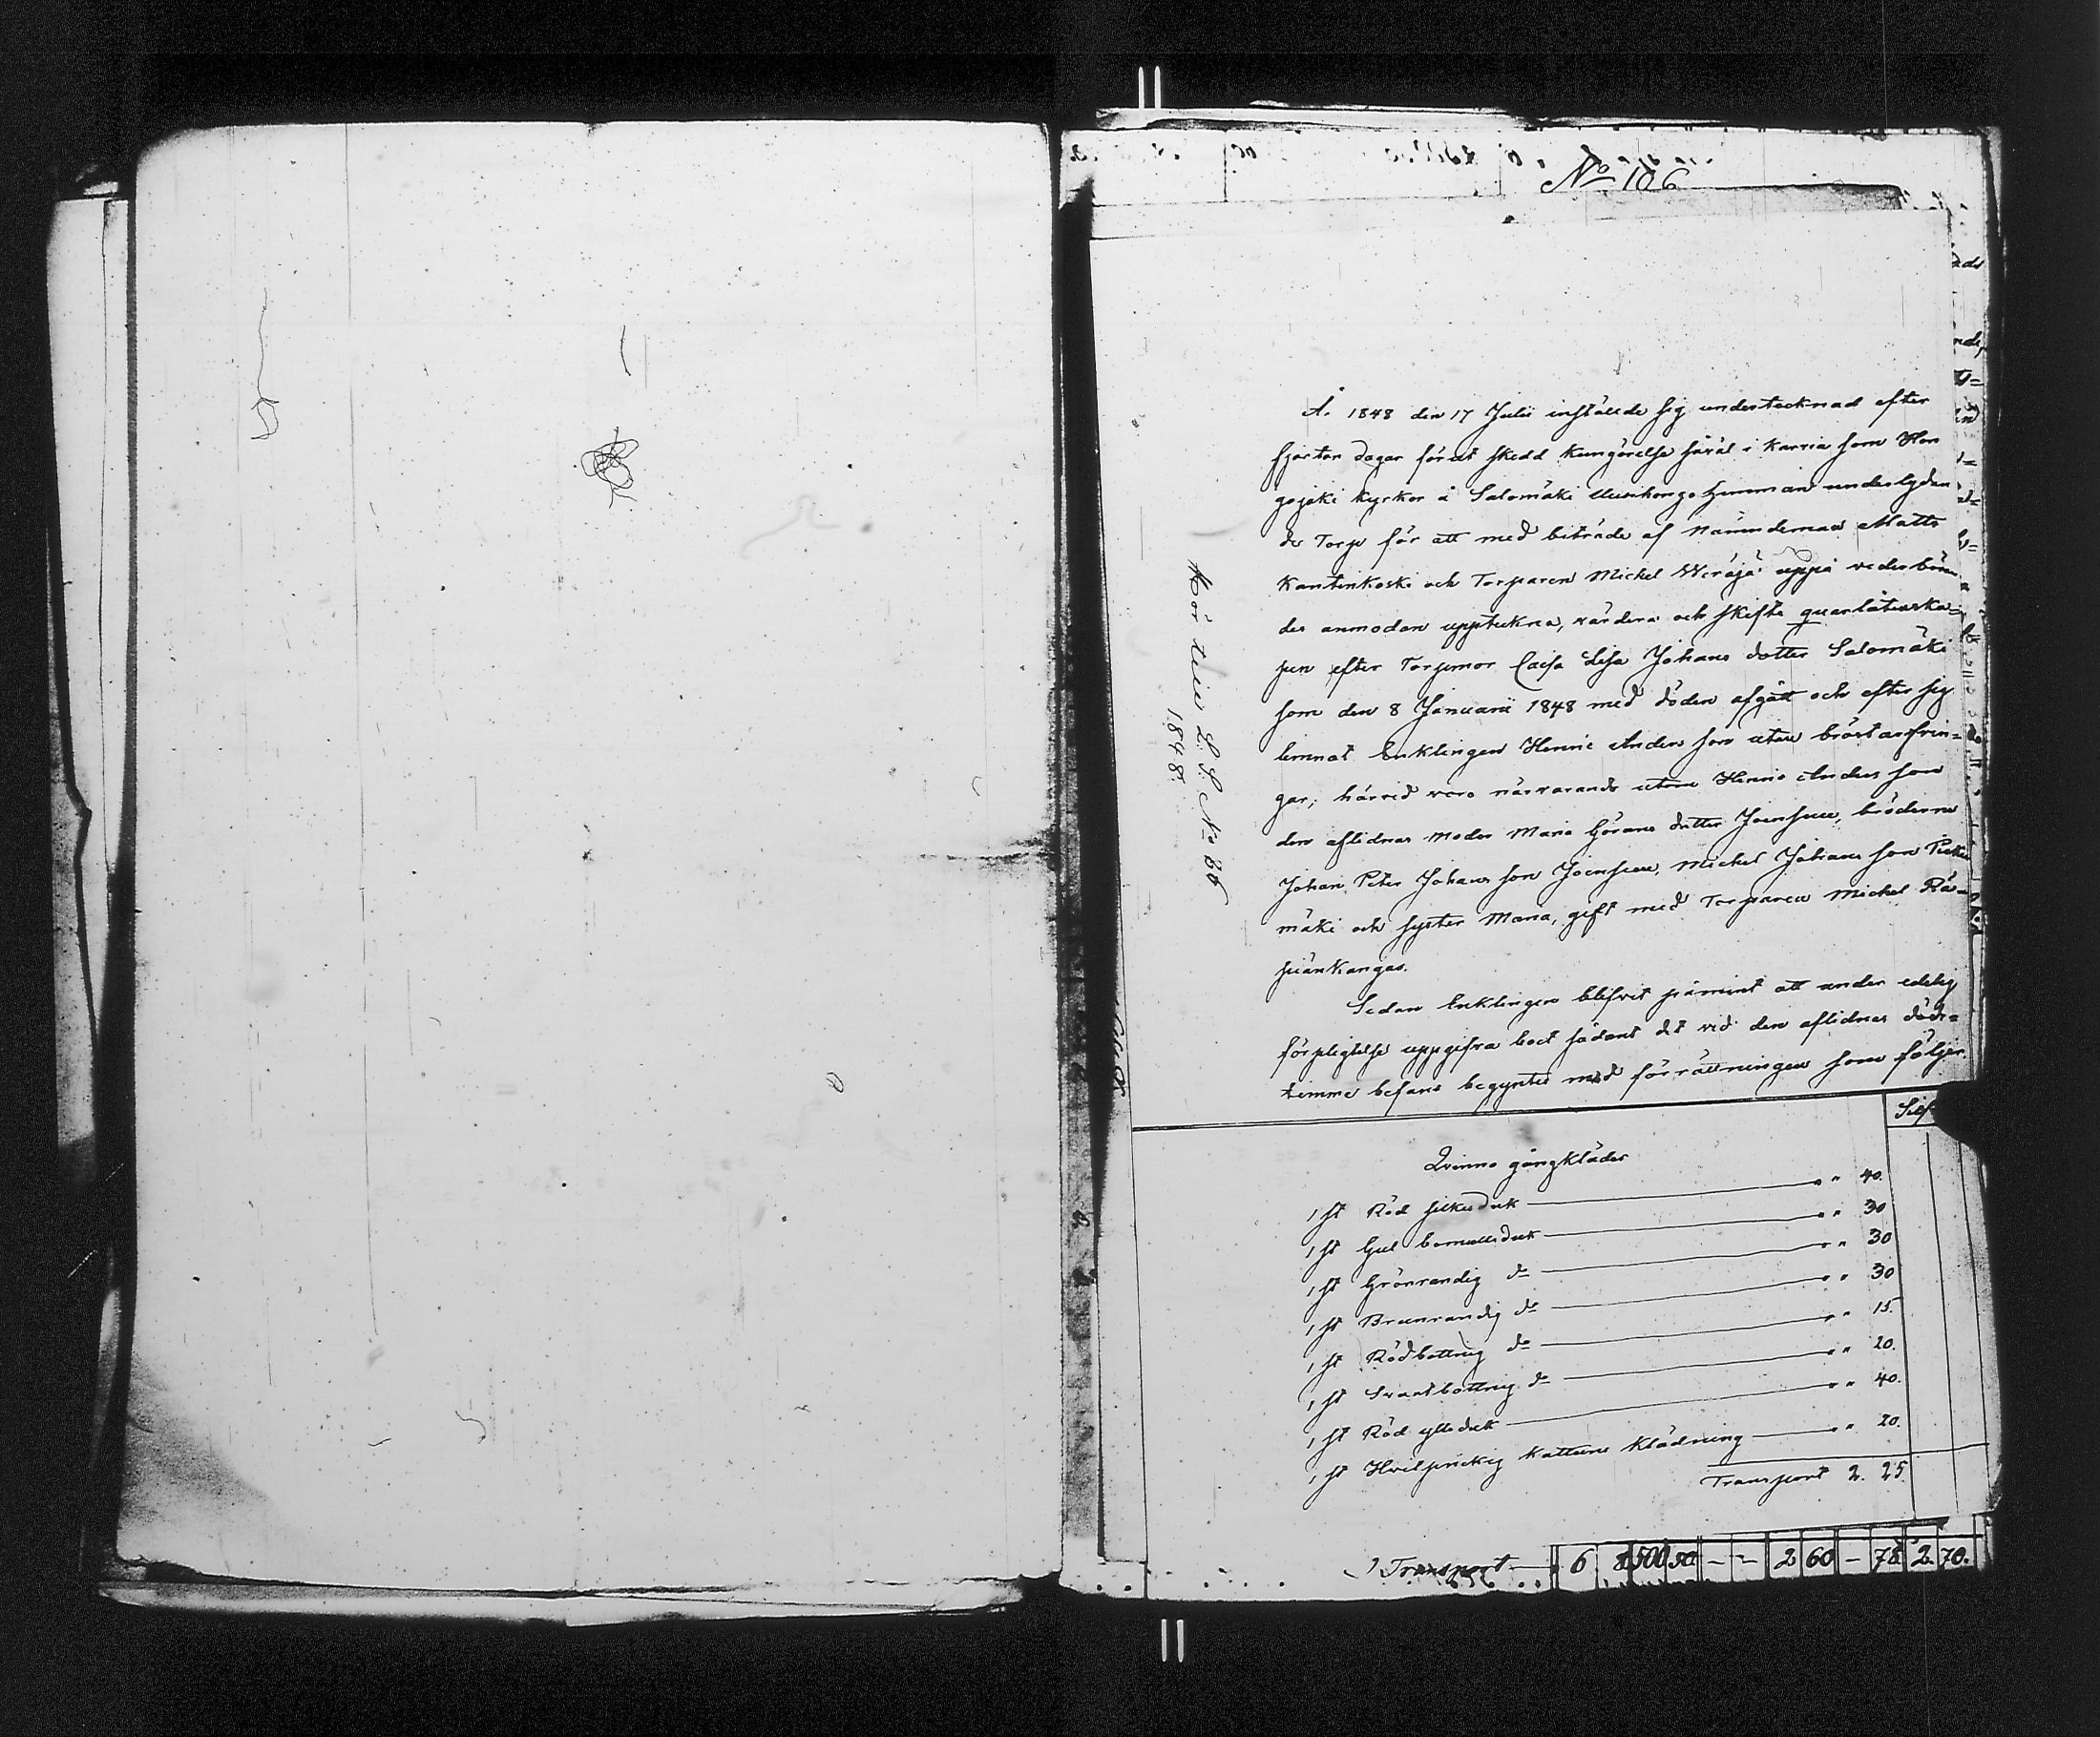 No 106
År 1848 den 17 Julii instälde sig undertecknad efter
fjorton dagar förut skedd kungörelse såväl i Karvia som Hon
gojoki kyrkor å Salomäki hemman underlydan
de Torp för att med biträde af Nämndeman Matts
Kantinkoski och Torparen Michel uppå vederböran
des anmodan uppteckna, värdera och skifta quarlåtenska=
pen efter Torpmor Caisa Lisa Johans dotter Salomäki
som den 8 Januarii 1848 med döden afgått och efter sig
lemnat Enklingen Henric Anders son utan bröstarfvin=
gar; härvid voro närvarande utom Henric Anders son
den aflidnas moder Maria Görans dotter Joensuu, bröderne
Johan, Peter Johans son Joensuu, Michel Johans son
mäki och syster Maria, gift med Torparen Michel Rä=
piänkangas.
Sedan Enklingen blifvit påmint att under edelig
förpligtelse uppgifva boet sådant det vid den aflidnas döds=
timme befans begyntes med förrättningen som följer
Qvinno gångkläder
1 st Röd silkesduk " " 40.
1 st Gul bomullsduk " " 30
1 st Grönrandig do " " 30
1 st Brunrandig do " " 30
1 st Rödbottnig do " " 15.
1 st Svartbottnig do " " 20.
1 st Röd ylleduk " " 40.
1 st Hvitprickig kattuns klädning " " 20.
Transport 2. 25.
Hör till L. S. No 86
1848.
Transport 6 50 – – 2 60 – 75 2. 70.